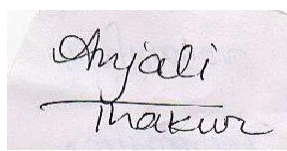 Anjali
Thakur